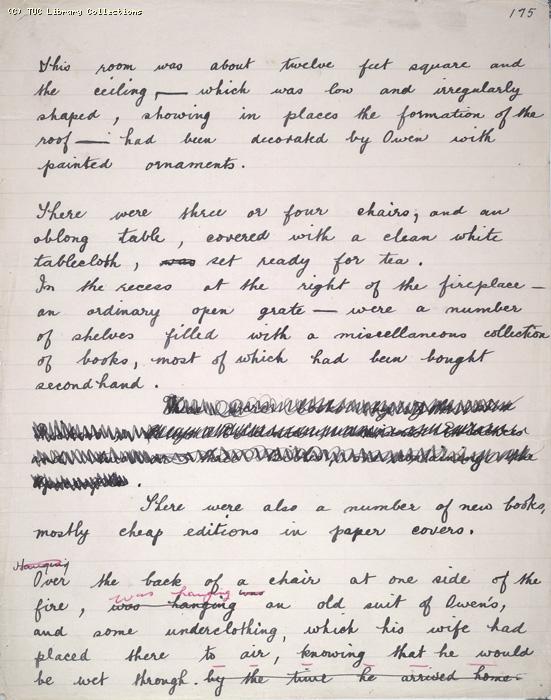 (C) TUC Library Collections
175
This room was about twelve feet square and
the ceiling, — which was low and irregularly
shaped, showing in places the formation of the
roof — had been decorated by Owen with
painted ornaments.
There were three or four chairs, and an
oblong table, covered with a clean white
tablecloth, was set ready for tea.
In the recess at the right of the fireplace —
an ordinary open grate — were a number
of shelves filled with a miscellaneous collection
of books, most of which had been bought
second hand.
There were also a number of new books,
mostly cheap editions in paper covers.
Hanging
Over the back of a chair at one side of the
was hanging was
fire, was hanging an old suit of Owen's,
and some underclothing, which his wife had
placed there to air, knowing that he would
be wet through by the time he arrived home.